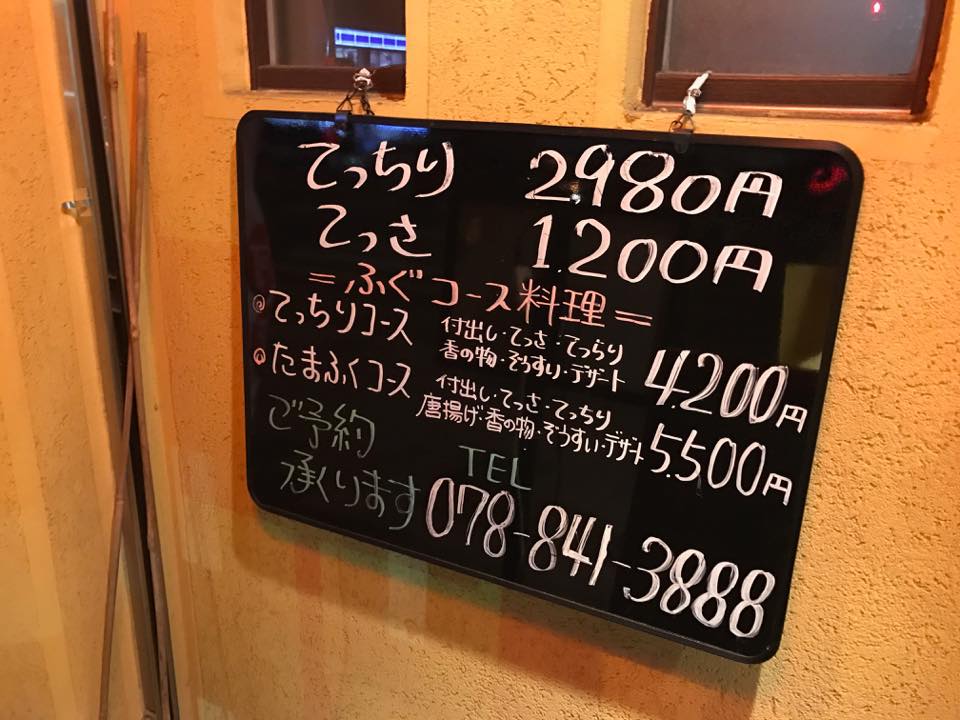 てっちり 2,980円
てっさ 1.200円
=ふぐコース料理=
◎てっちりコース 付出し・てっさ・てっちり
香の物・ぞうすい・デザート 4.200円
◎たまふくコース 付出し・てっさ・てっちり
唐揚げ・香の物・ぞうすい・デザート 5.500円
ご予約
承くります
TEL
078-841-3888